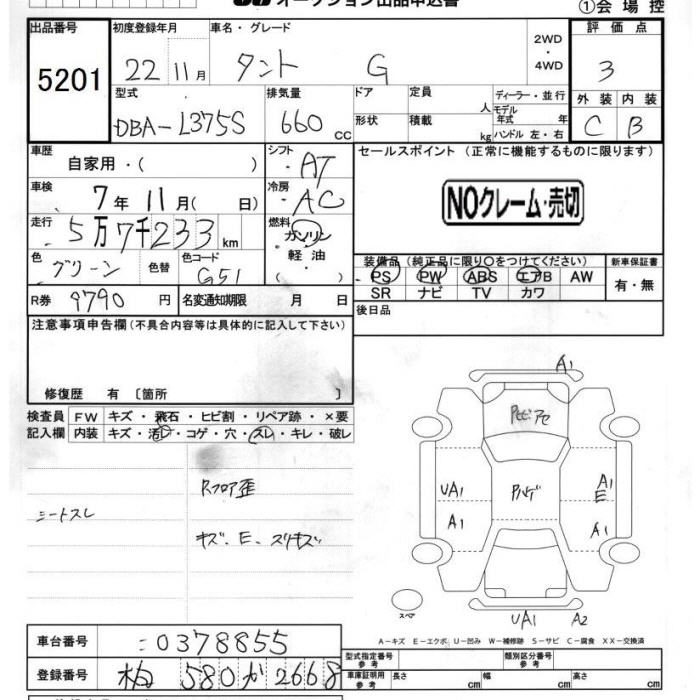 オークション出品申込書
①会場控
出品番号 初度登録年月 車名・グレード 2WD ・ 4WD 評価点
5201 22 11月 タント G 3
型式 排気量 ドア 定員 人 ディーラー・並行 外装 内装
DBA-L375S 660cc 形状 積載 kg モデル年式 年 ハンドル 左・右 C B
車歴 自家用・( ) シフト ・AT セールスポイント (正常に機能するものに限ります)
車検 7年11月( 日) 冷房 ・AC NOクレーム・売切
走行 5万7千233km 燃料 ガソリン 軽油
色 グリーン 色替 色コード G51 装備品 (純正品に限り○をつけてください) 新車保証書
PS PW ABS エアB AW 有・無
SR ナビ TV カワ
R券 9790円 名変通知期限 月 日 後日品
注意事項申告欄 (不具合内容等は具体的に記入して下さい)
修復歴 有 〔箇所 〕
検査員 FW キズ・飛石・ヒビ割・リペア跡・×要
記入欄 内装 キズ・汚レ・コゲ・穴・スレ・キレ・破レ
Rフロア歪
シートスレ
キズ、E、スリキズ
A1
UA1 A1 E
A1 A1
スペア
UA1 A2
A-キズ E-エクボ U-凹み W-補修跡 S-サビ C-腐食 XX-交換済
車台番号 :0378855
登録番号 柏 580 か 2668
型式指定番号 参考 類別区分番号 参考
車庫証明用 参考 長さ cm 幅 cm 高さ cm